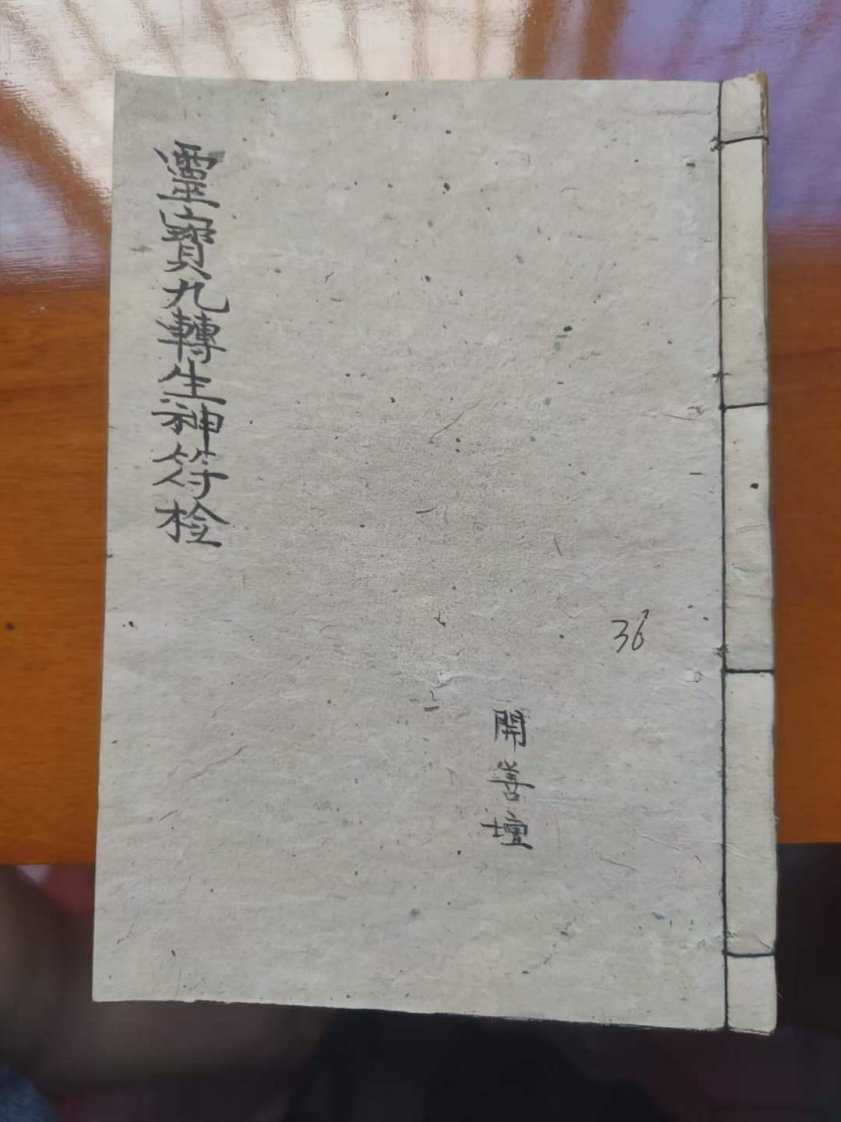 靈寶九轉生神符栓
36
開善壇